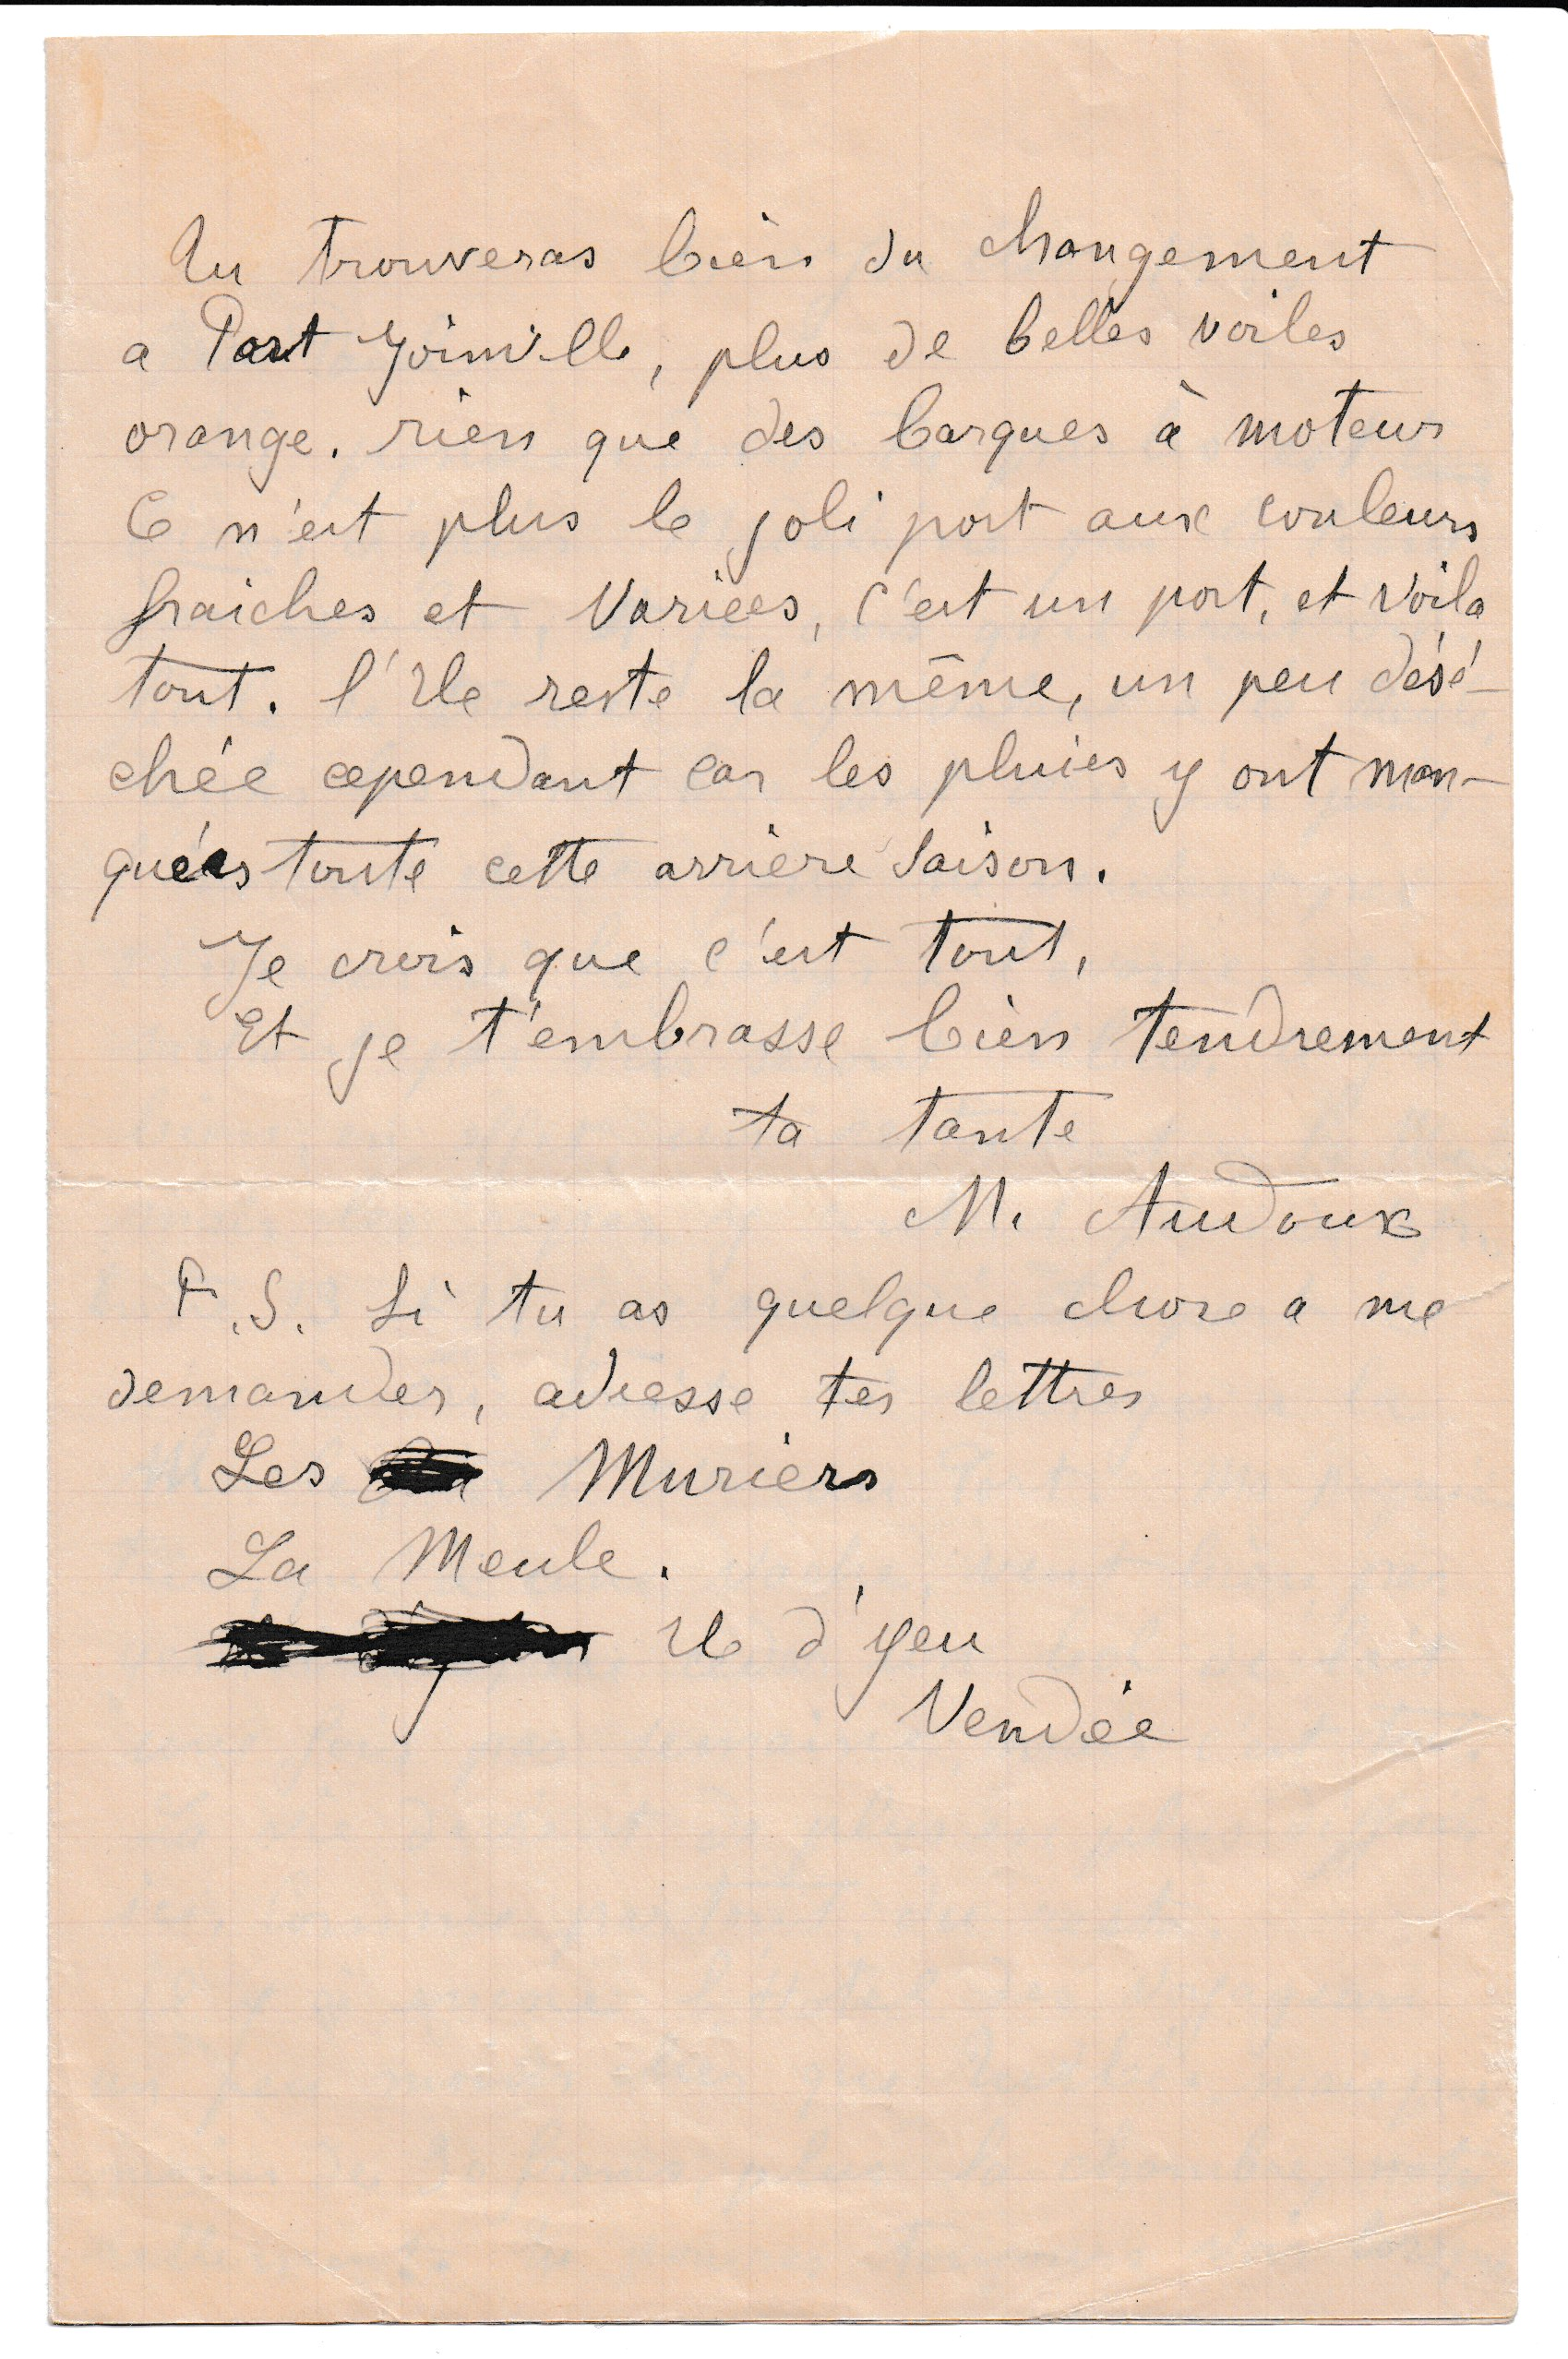 Tu trouveras bien du changement
a Port Joinville, plus de belles voiles
orange. rien que des barques à moteur
Ce n'est plus le joli port aux couleurs
fraiches et variées, c'est un port, et voila
tout. l'Ile reste la même, un peu désé-
chée cependant car les pluies y ont man-
quées toute cette arrière saison.
Je crois que c'est tout,
Et je t'embrasse bien tendrement
ta tante
M. Audoux
P.S. Si tu as quelque chose a me
demander, adresse tes lettres
Les Muriers
La Meule.
Ile d'yeu
Vendée